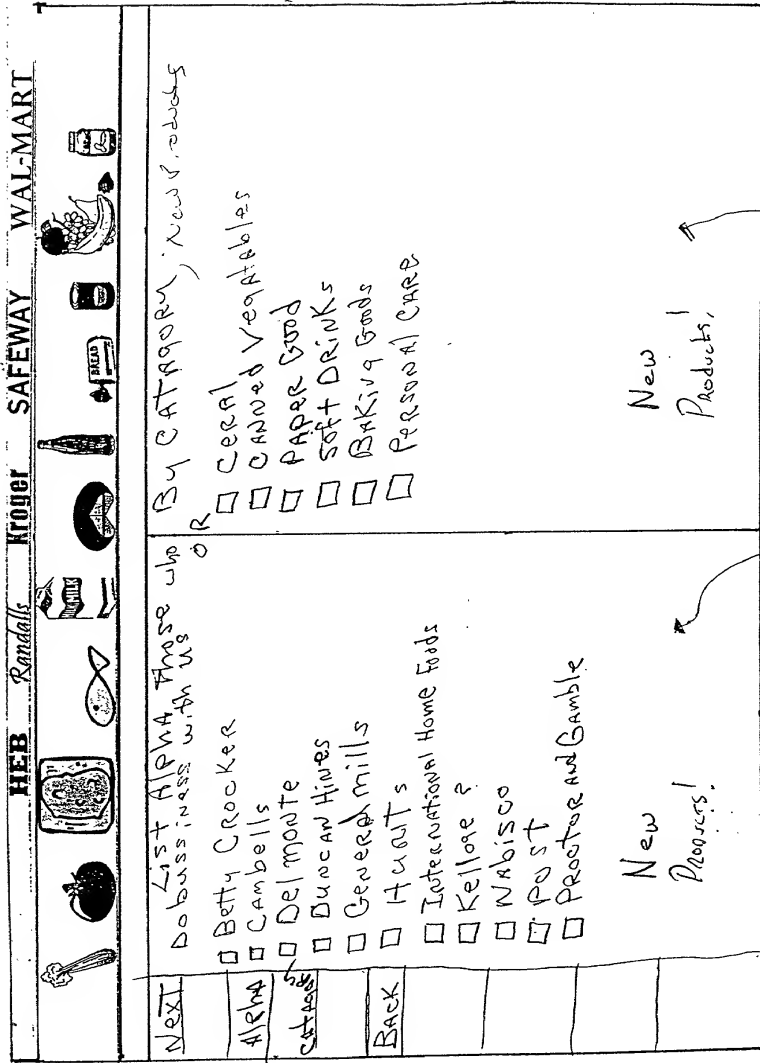 HEB Randalls Kroger SAFEWAY WAL-MART
MILK
BREAD
NexT
AlpHA
CATAgory
BACK
List AlpHA Those who
Do bussiness with us
OR
Betty CROCKER
CAmbells
Del monte
DUNCAN HiNes
GeneRAl mills
HUNTs
INTerNATioNAl Home Foods
Kelloge ?
NAbisco
POST
PROCTOR AND GAmble
New
Products!
By CATAgoRy, New Products
CeRAl
CANNed VegAtAbles
PAPeR Good
SoFT DRiNKs
BAKiNg Goods
PeRsoNAl CARe
New
Products!